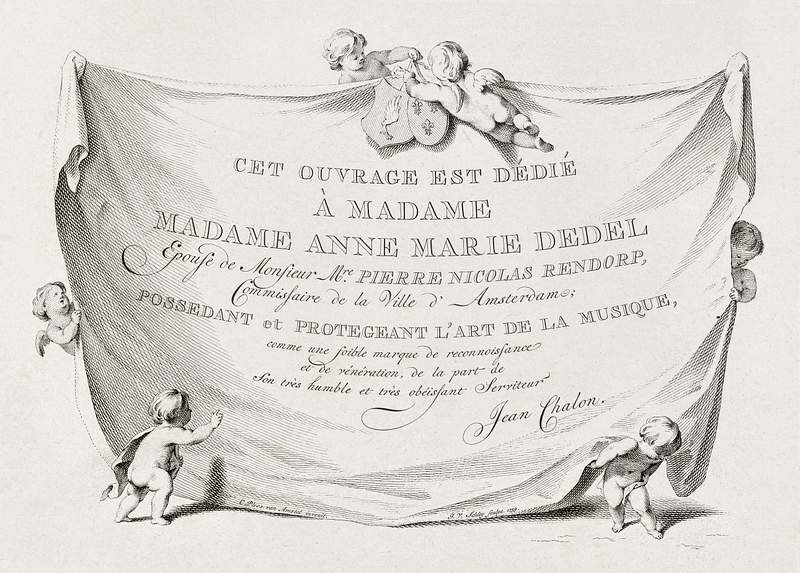 CET OUVRAGE EST DÉDIÉ
À MADAME
MADAME ANNE MARIE DEDEL
Epouse de Monsieur Mre. PIERRE NICOLAS RENDORP,
Commissaire de la Ville d'Amsterdam;
POSSEDANT et PROTEGEANT L'ART DE LA MUSIQUE,
comme une foible marque de reconnoissance
et de vénération, de la part de
Son très humble et très obéissant Serviteur
Jean Chalon.
C. Ploos van Amstel invenit.